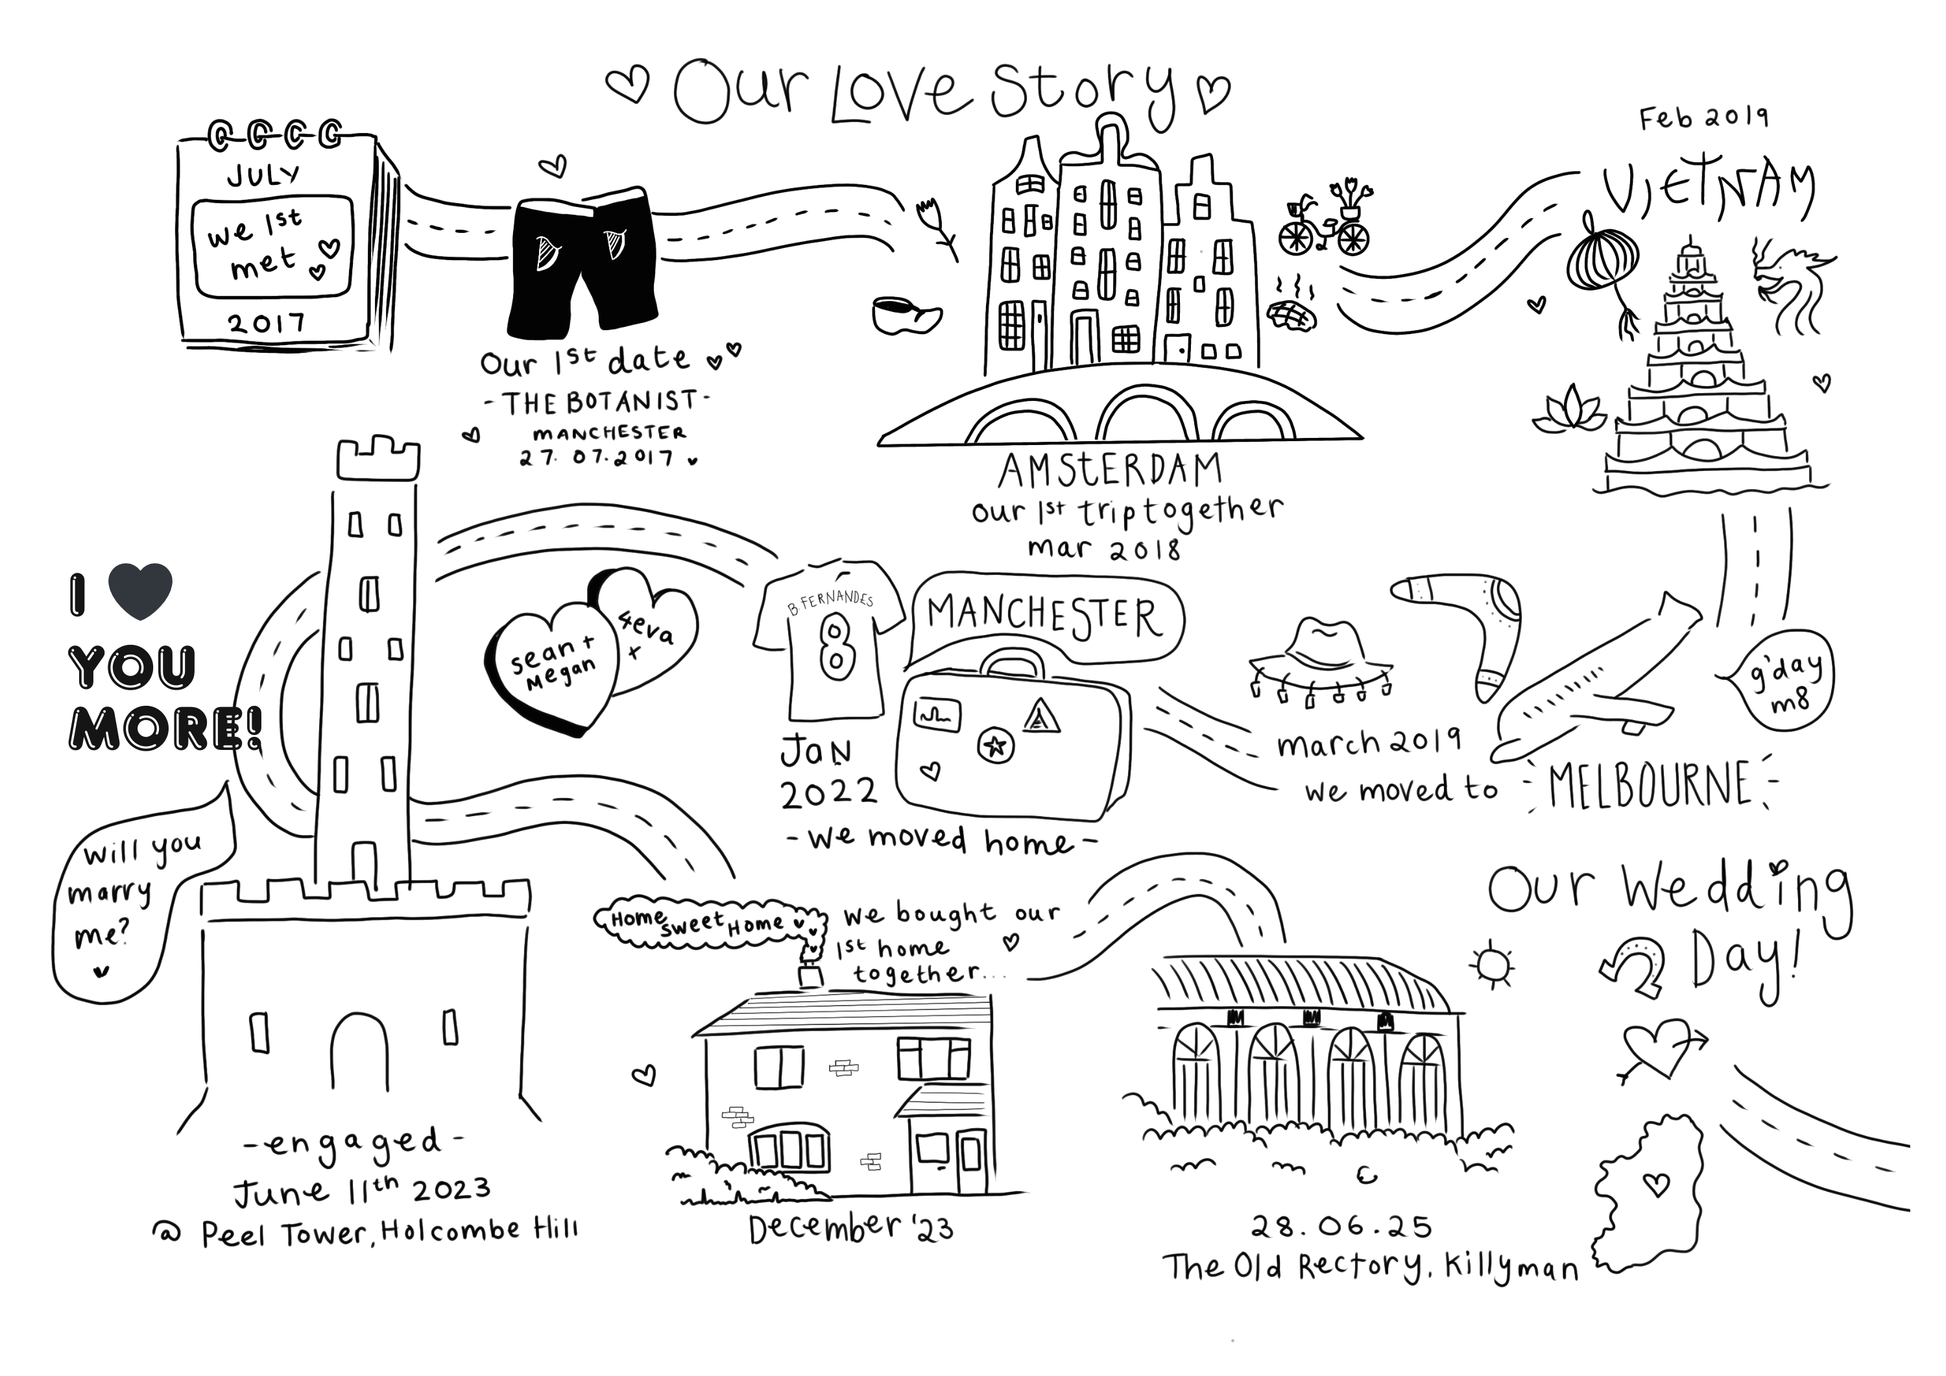 Our Love Story
JULY
we 1st
met
2017
Our 1st date
- THE BOTANIST -
MANCHESTER
27.07.2017
AMSTERDAM
our 1st trip together
mar 2018
Feb 2019
VIETNAM
g'day
m8
march 2019
we moved to
MELBOURNE
MANCHESTER
B. FERNANDES
8
Jan
2022
- we moved home -
sean +
Megan
4eva
+
I ♥
YOU
MORE!
Will you
marry
me?
- engaged -
June 11th 2023
@ Peel Tower, Holcombe Hill
Home Sweet Home
we bought our
1st home
together...
December '23
Our Wedding
Day!
28.06.25
The Old Rectory, Killyman